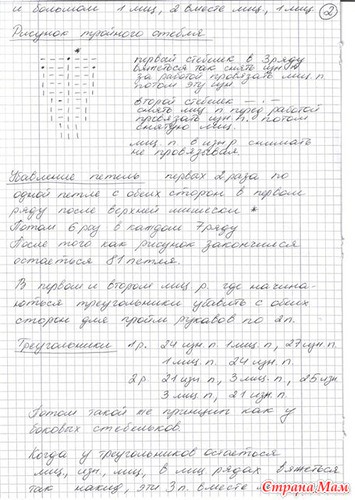 и боломом 1 лиц, 2 вместе лиц, 1 лиц
2
Рисунок тройного стебля
*
первый стебшек в 3 ряду
вяжеться так снять изн п
за работой провязать лиц. п.
потом эту изн.
второй стебшек — · —
снять лиц п перед работой
провязать изн п. потом
снятую лиц.
лиц п. в изн р снимать
не провязывая.
Кавление петель первых 2 раза по
одной петле с обеих сторон в первом
ряду после верхней шишеси *
Потом 6 раз в каждом 7 ряду
После того как рисунок закончился
остаеться 81 петля.
В первом и втором лиц р. где начина-
ються треугольники убавить с обеих
сторон для пройм рукавов по 2п.
Треугольники 1р. 24 изн п. 1 лиц. п, 27 изн п.
1 лиц п. 24 изн.
2р. 21 изн п, 3 лиц п., 25 изн
3 лиц п, 21 изн п.
Потом такой же принцип как у
боковых стебельков.
Когда у треугольников остаеться
лиц, изн, лиц, в лиц рядах вяжеться
так накид, эти 3 п. вместе
Страна Мам